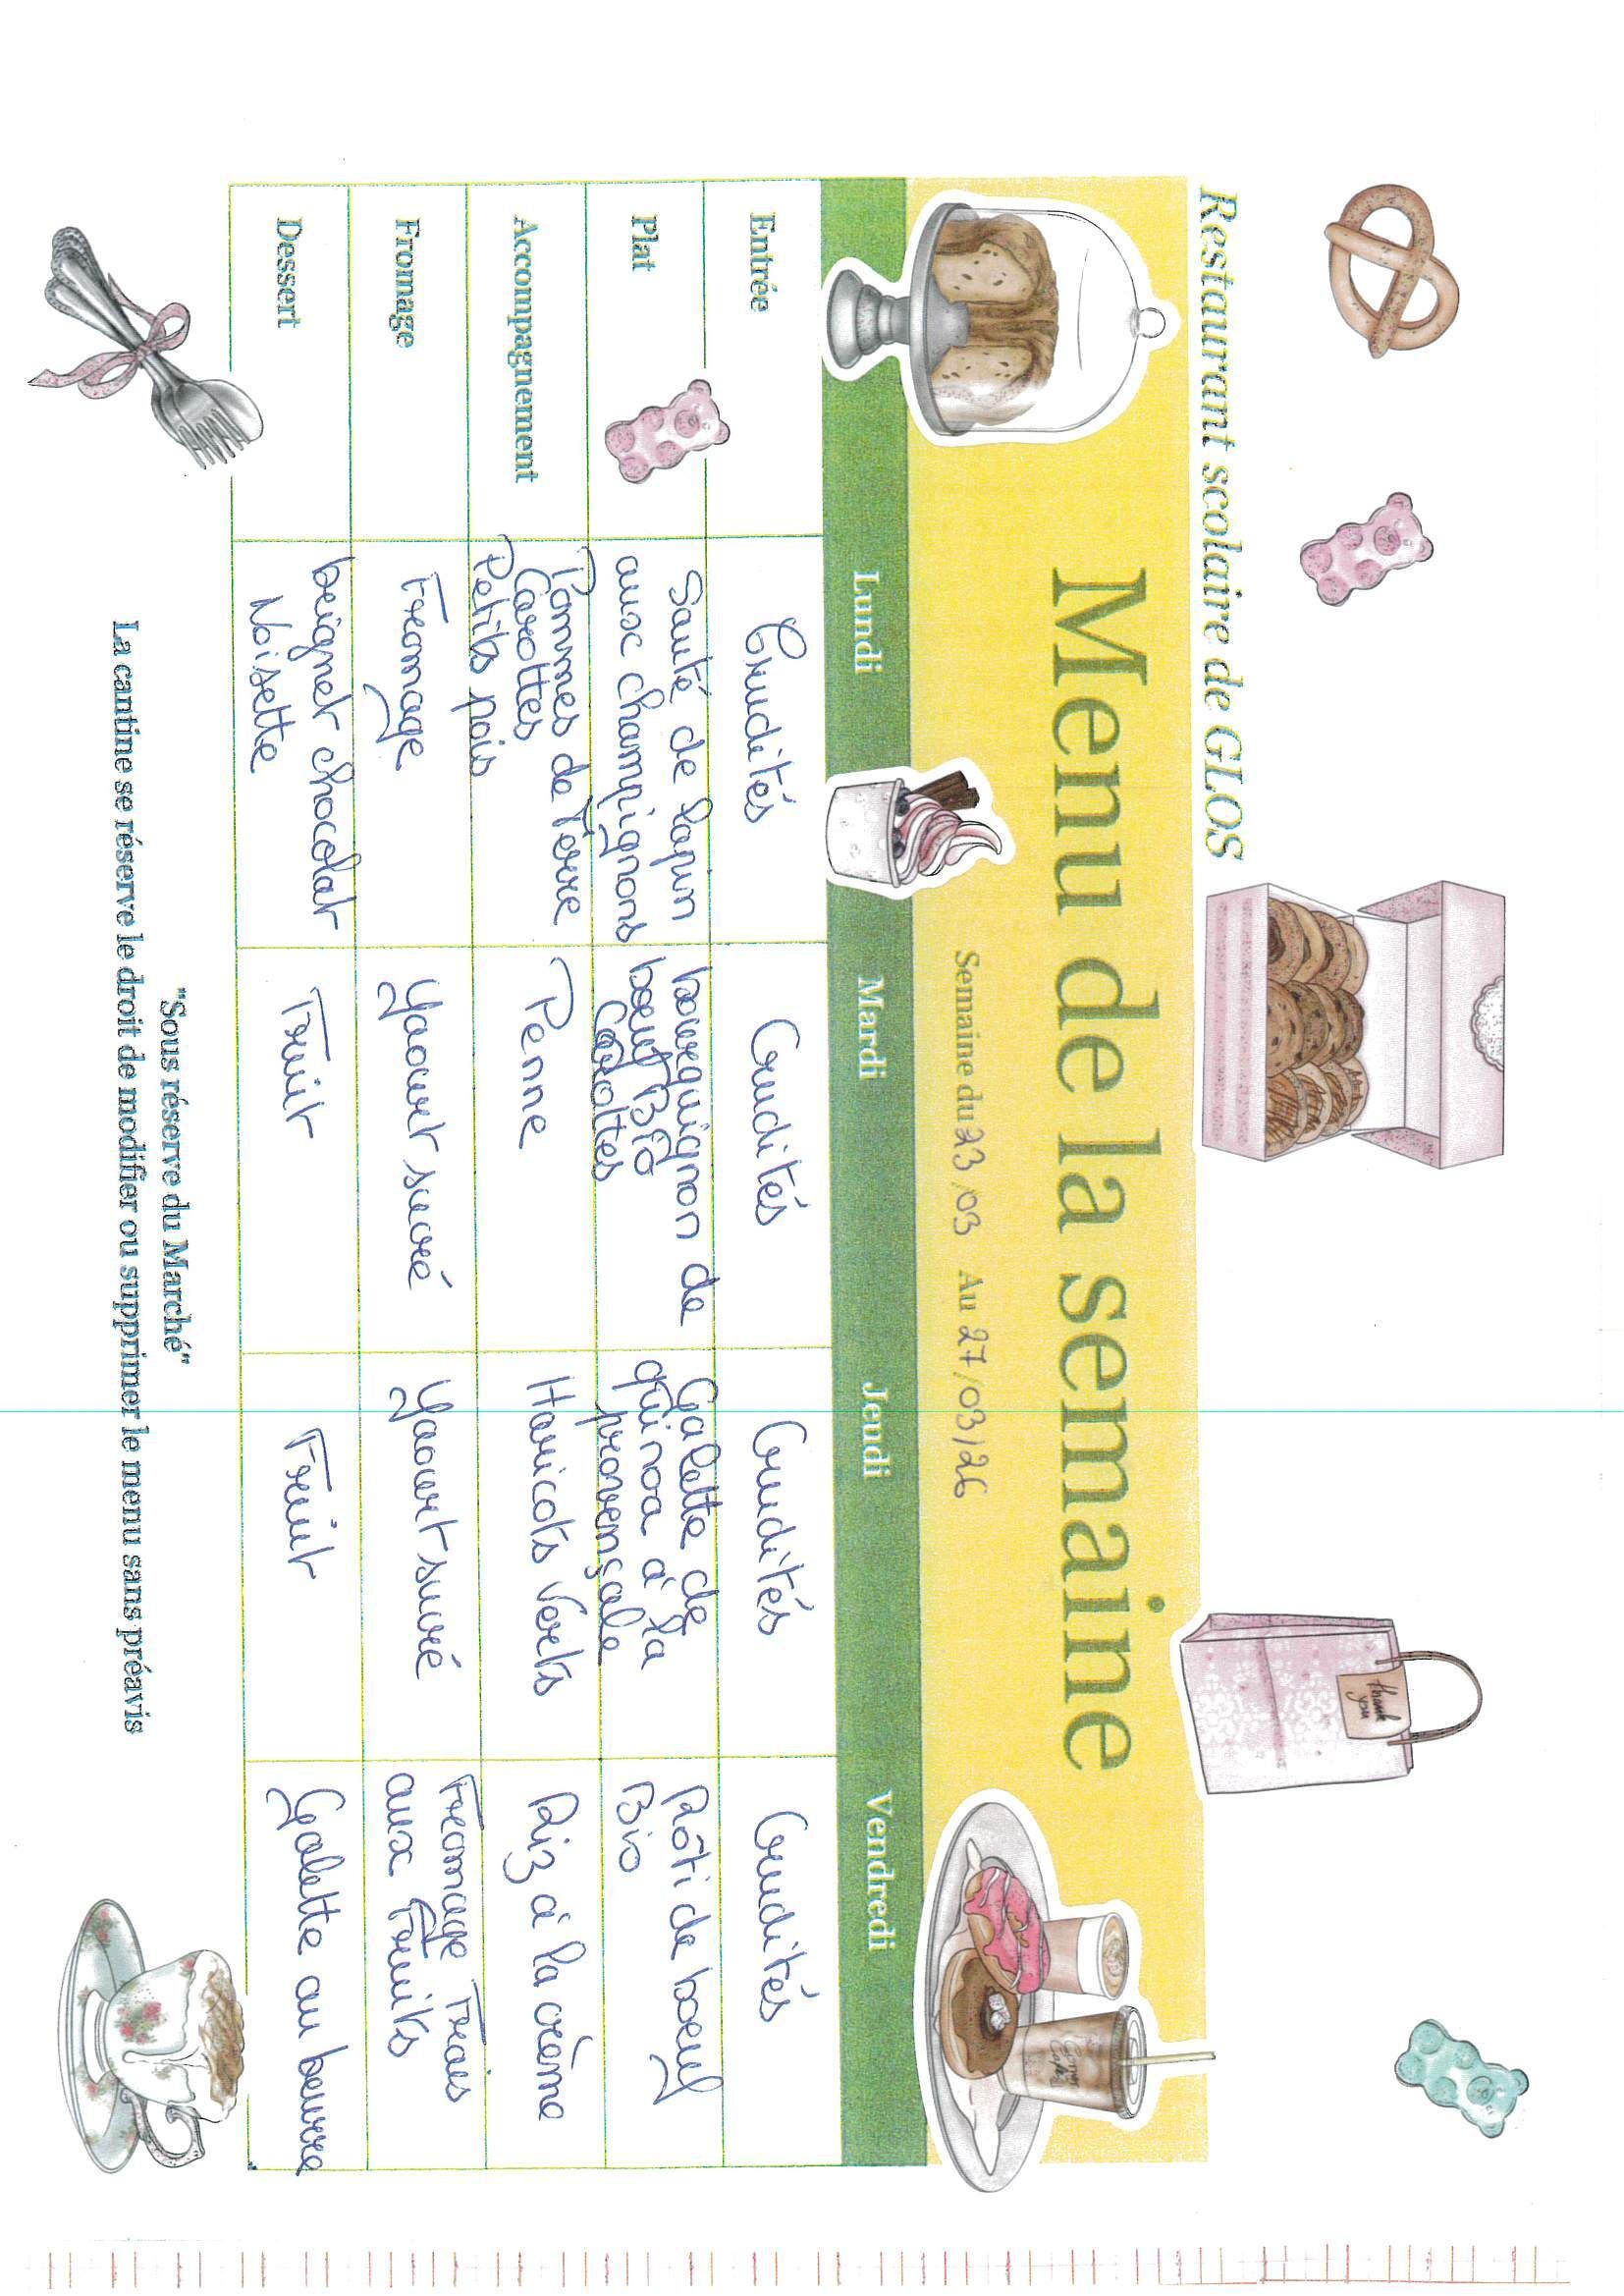 Restaurant scolaire de GLOS
Menu de la semaine
Semaine du 23/03 Au 27/03/26
Lundi Mardi Jeudi Vendredi
Entrée
Crudités
Crudités
Crudités
Crudités
Plat
Sauté de lapin
aux champignons
bourguignon de
boeuf Bio
Carottes
Galette de
quinoa à la
provençale
Rôti de boeuf
Bio
Accompagnement
Pommes de Terre
Carottes
Petits pois
Penne
Haricots Verts
Riz à la crème
Fromage
Fromage
Yaourt sucré
Yaourt sucré
Fromage Frais
aux Fruits
Dessert
beignet chocolat
Noisette
Fruit
Fruit
Galette au beurre
"Sous réserve du Marché"
La cantine se réserve le droit de modifier ou supprimer le menu sans préavis
thank
you